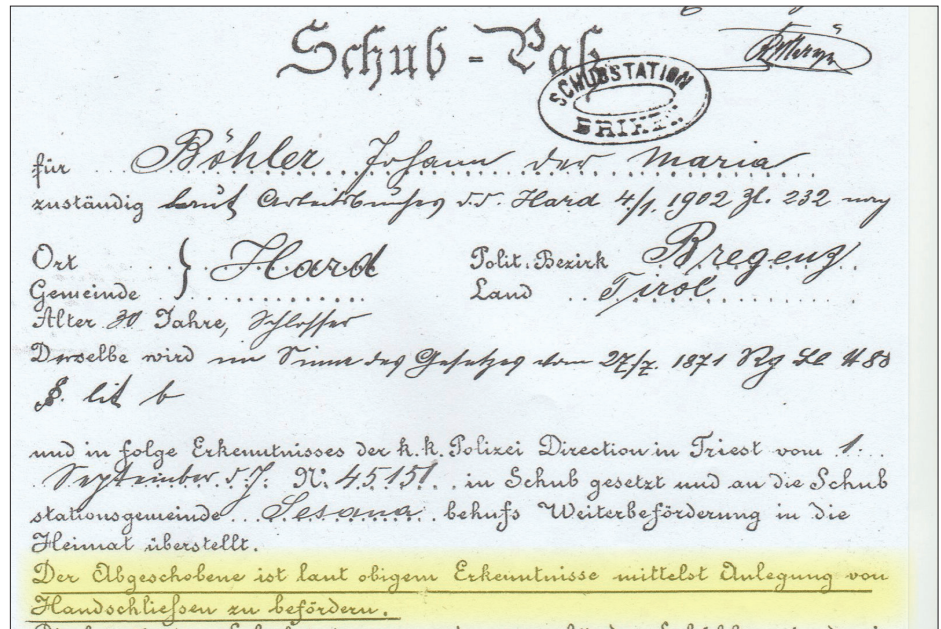 Schub-Paß
SCHUBSTATION
BRIXEN
für Böhler Johann der Maria
zuständig laut Arbeitsbuches d.d. Hard 4/1. 1902 Zl. 232 nach
Ort
Gemeinde } Hard
Polit. Bezirk Bregenz
Land Tirol
Alter 30 Jahre, Schlosser
Derselbe wird im Sinne des Gesetzes vom 27/7. 1871 Rg Bl N 88
§. lit b
und in folge Erkenntnisses der k.k. Polizei Direction in Triest vom 1.
September d.J. N: 45151. in Schub gesetzt und an die Schub
stationsgemeinde Sesana behufs Weiterbeförderung in die
Heimat überstellt.
Der Abgeschobene ist laut obigem Erkenntnisse mittelst Anlegung von
Handschliessen zu befördern.